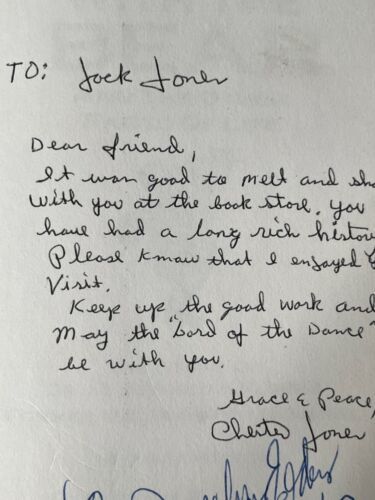 TO: Jack Jones
Dear friend,
It was good to meet and sha
with you at the book store. You
have had a long rich histor
Please know that I enjoyed
Visit.
Keep up the good work and
May the "Lord of the Dance"
be with you.
Grace & Peace,
Chester Jones